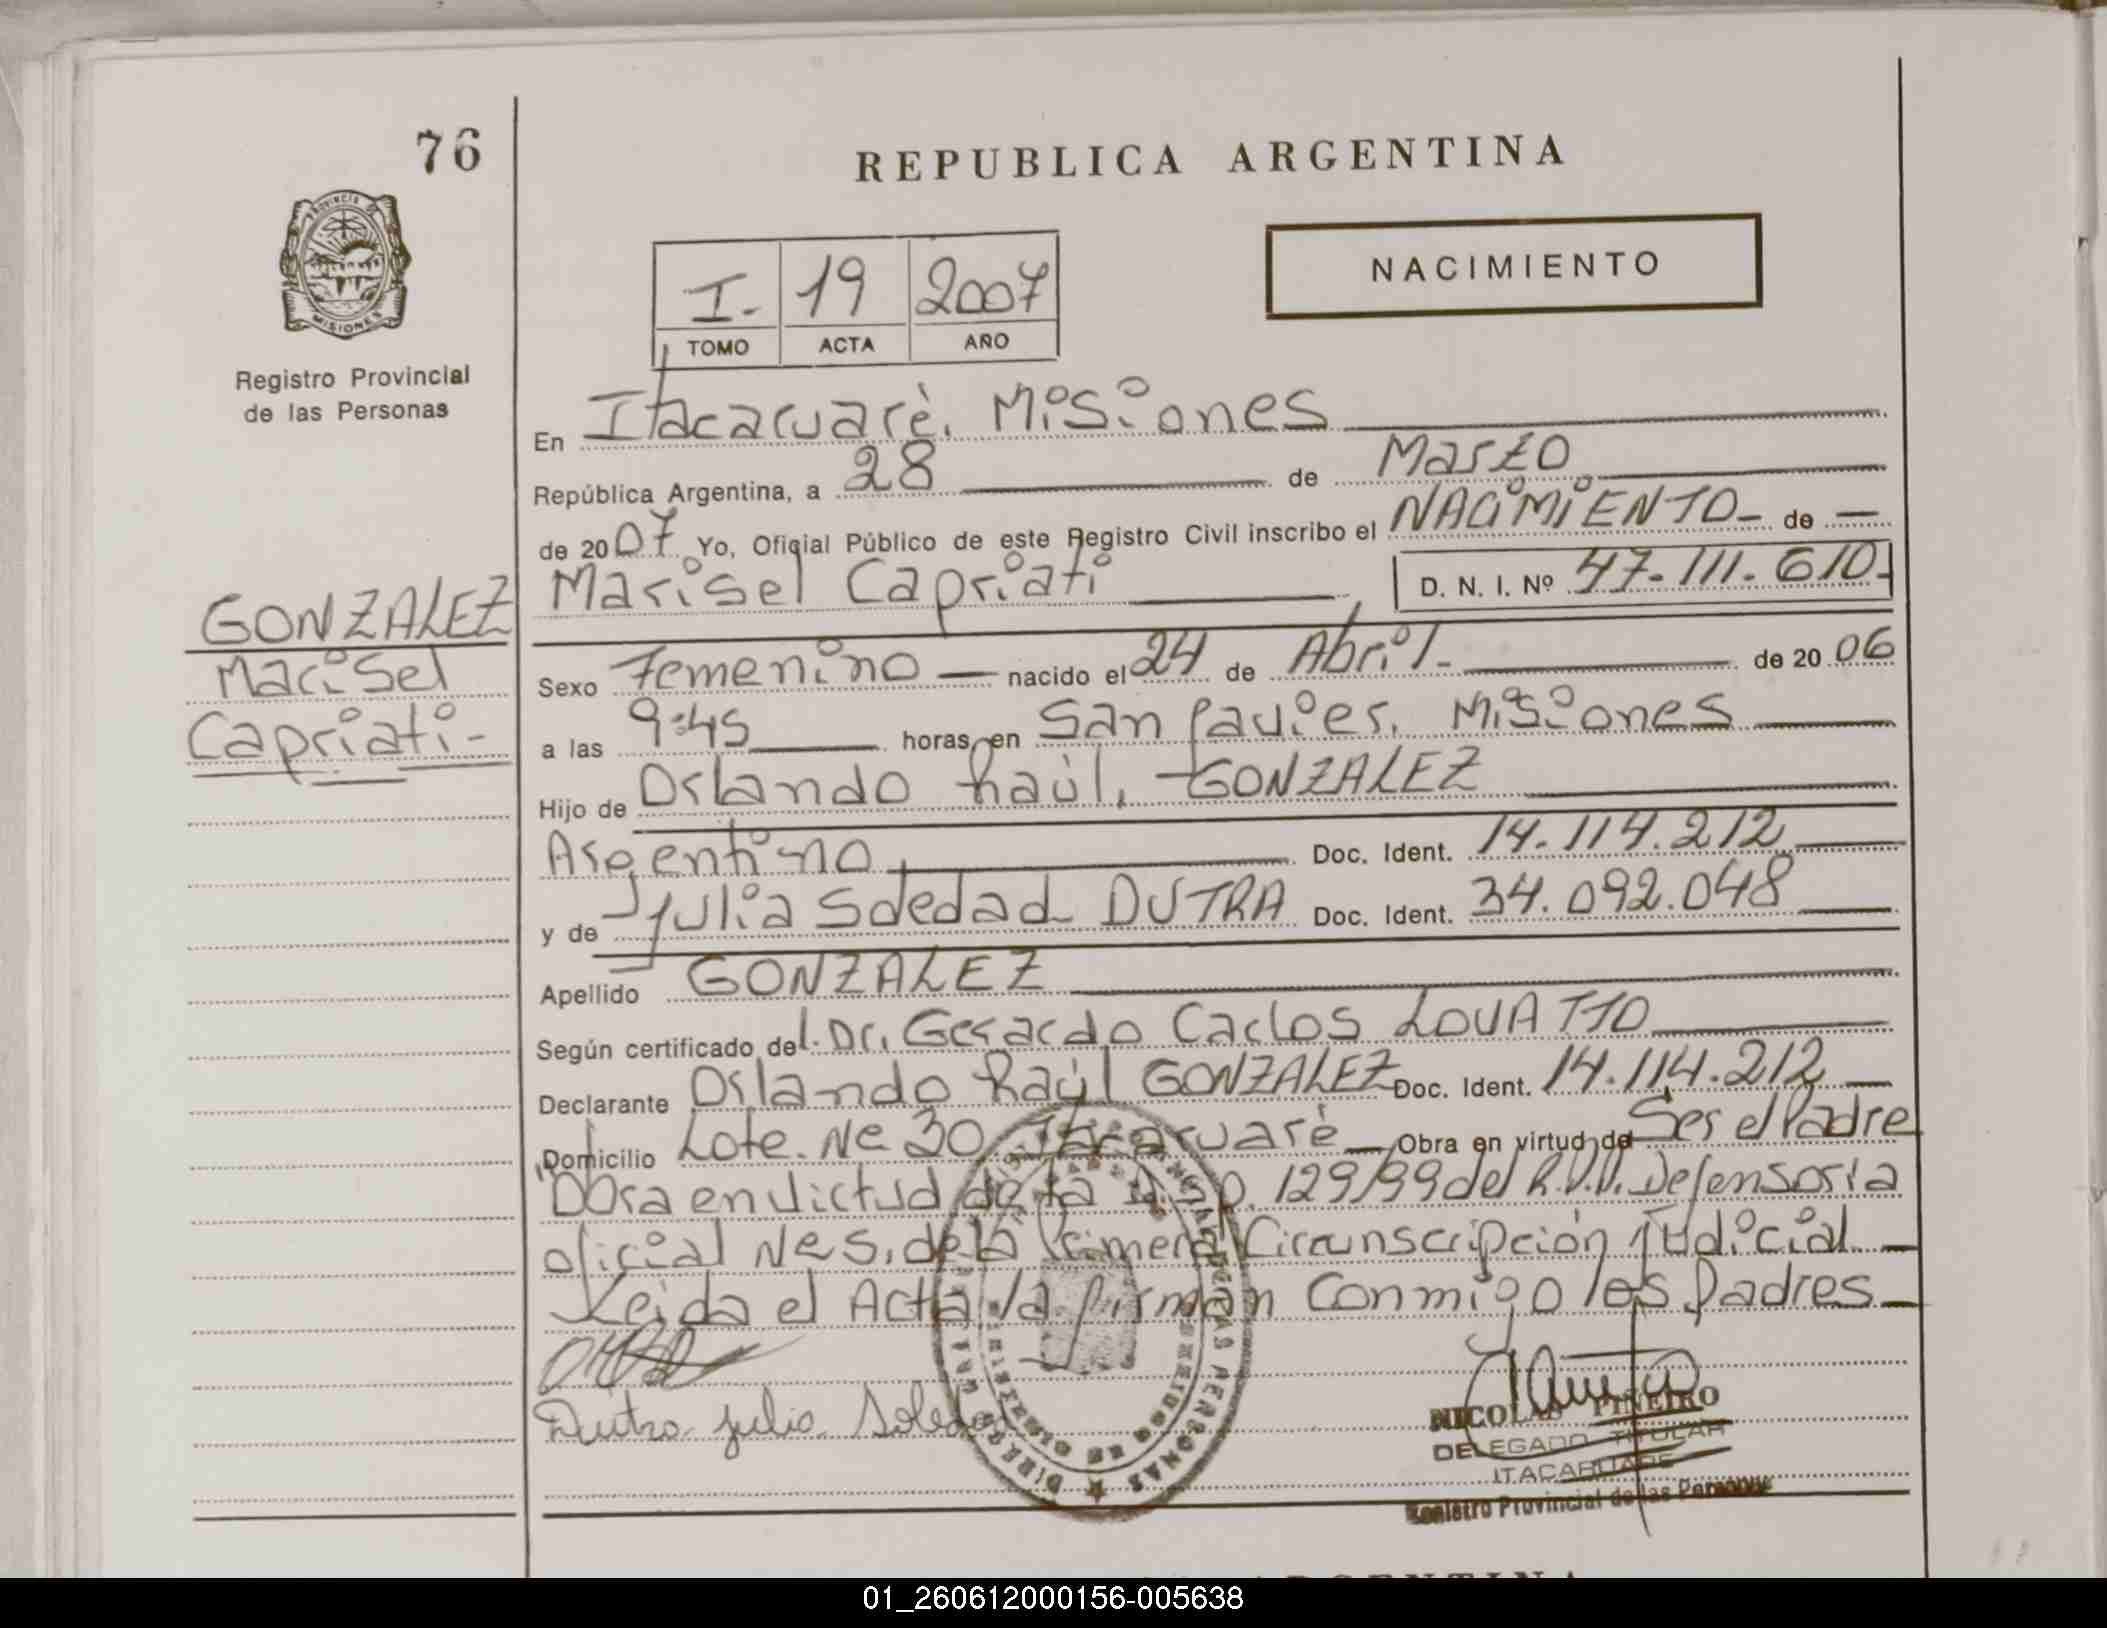 76
REPUBLICA ARGENTINA
PROVINCIA DE
MISIONES
Registro Provincial
de las Personas
NACIMIENTO
I. 19 2007
TOMO ACTA AÑO
En Itacaruaré, Misiones
República Argentina, a 28 de Marzo
de 2007 Yo, Oficial Público de este Registro Civil inscribo el NACIMIENTO - de -
Marisel Capriati D. N. I. Nº 47.111.610-
GONZALEZ
Marisel
Capriati-
Sexo Femenino nacido el 24 de Abril- de 2006
a las 9:45 horas, en San Javier, Misiones
Hijo de Orlando Raúl, GONZALEZ
Argentino Doc. Ident. 14.114.212
y de Julia Soledad DUTRA Doc. Ident. 34.092.048
Apellido GONZALEZ
Según certificado del. Dr. Gerardo Carlos LOVATTO
Declarante Orlando Raúl GONZALEZ Doc. Ident. 14.114.212
Domicilio Lote. Nº 30 Itacaruaré Obra en virtud de Ser el Padre
"Obra en virtud de la Disp. 129/99 del Defensoria
oficial Nº 5, de la Primera Circunscripción Judicial
Leida el Acta la firman conmigo los Padres
Dutra julia Soledad
NICOLAS PIÑEIRO
DELEGADO TITULAR
ITACARUARE
Registro Provincial de las Personas
ARGENTINA
01_260612000156-005638